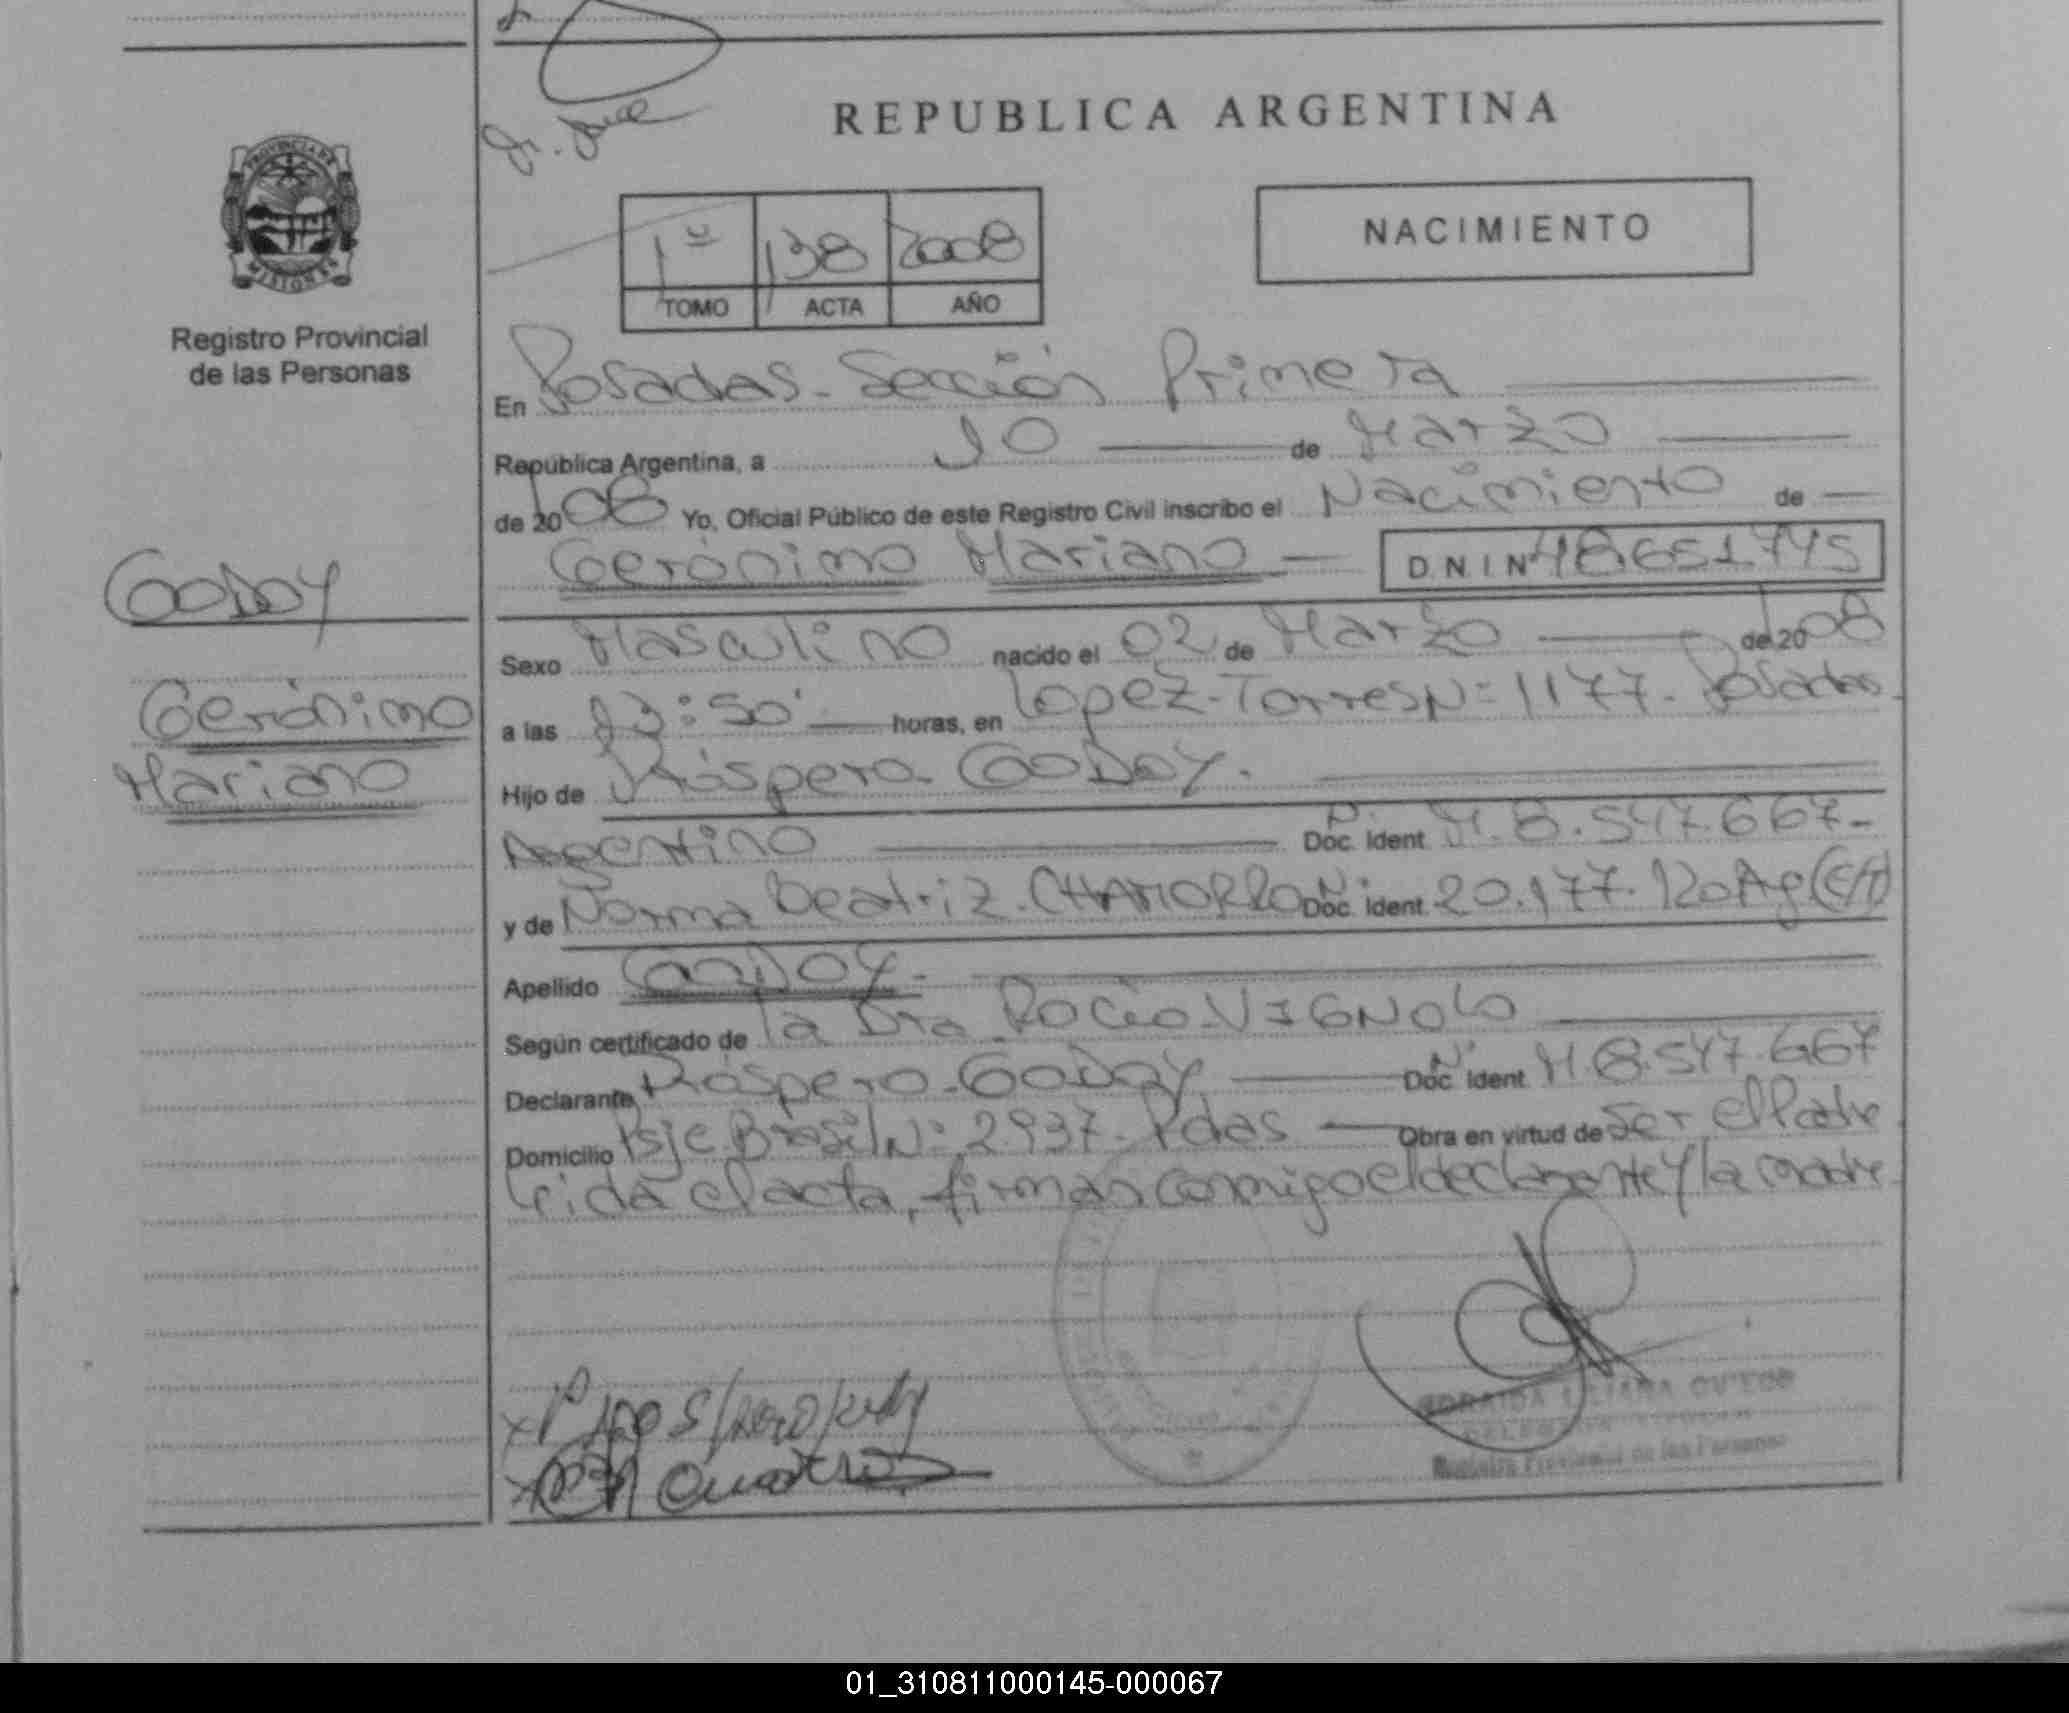 REPUBLICA ARGENTINA
PROVINCIA DE
MISIONES
Registro Provincial
de las Personas
NACIMIENTO
1º 138 2008
TOMO ACTA AÑO
En Posadas - Sección Primera
República Argentina, a 10 de Marzo
de 2008 Yo, Oficial Público de este Registro Civil inscribo el Nacimiento de
Gerónimo Mariano D N I Nº 48651775
GODOY
Gerónimo
Mariano
Sexo Masculino nacido el 02 de Marzo de 2008
a las :50' horas, en Lopez-Torres Nº 1177. Posadas
Hijo de Próspero GODOY.
Argentino Doc. Ident. M. 8.547.667-
y de Norma Beatriz. CHAMORRO Doc. Ident. 20.177.120 Ag (C/H)
Apellido GODOY-
Según certificado de la Dra Rocio VIGNOLO
Declarante Próspero GODOY Doc. Ident. M. 8.547.667
Domicilio Psje Brasil Nº 2937. Pdas Obra en virtud de Ser el Padre
Leida el acta, firman conmigo el declarante y la madre
LILIANA
Registro Provincial de las Personas
01_310811000145-000067